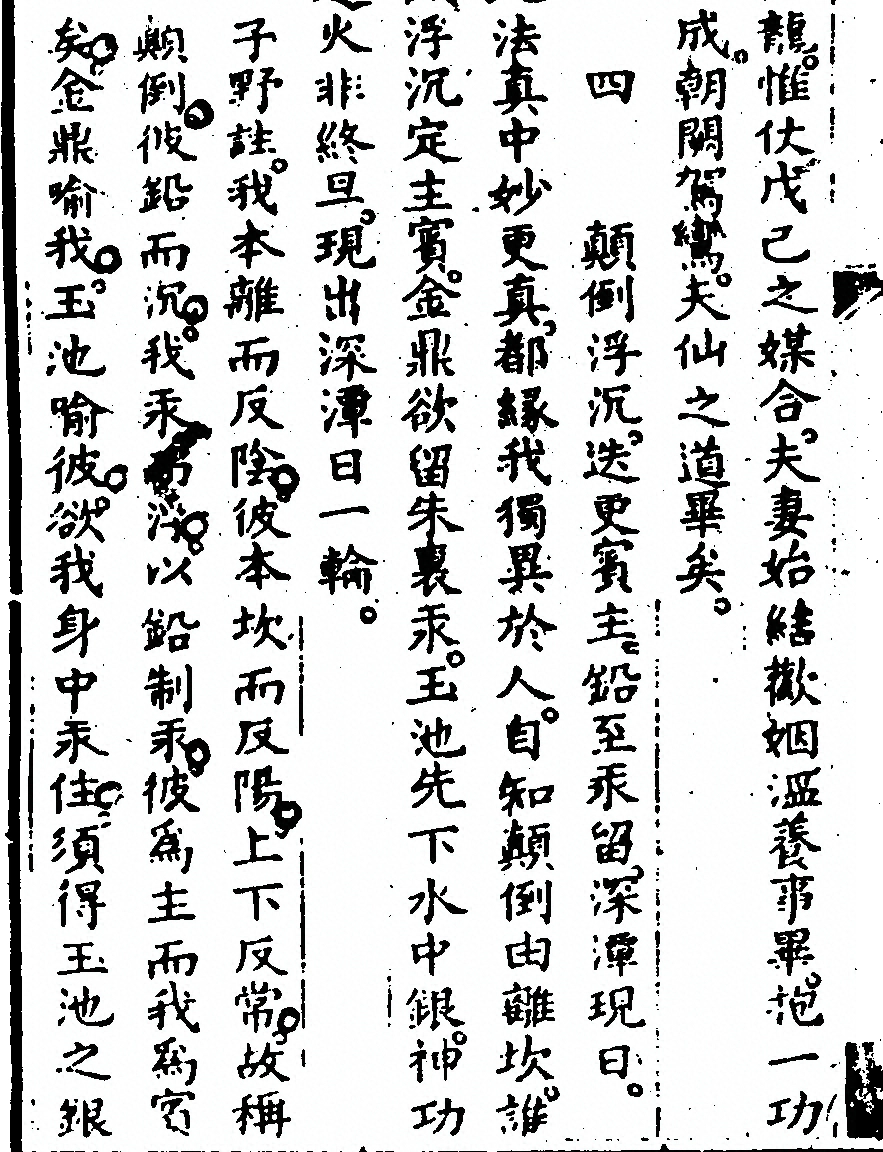 龍惟仗戊己之媒合夫妻始結歡姻溫養事畢抱一功
成朝闕駕鸞夫仙之道畢矣
四　顛倒浮沉迭更賓主鉛至汞留深潭現日
法真中妙更真都緣我獨異於人自知顛倒由離坎誰
浮沉定主賓金鼎欲留朱裏汞玉池先下水中銀神功
火非終旦現出深潭日一輪
子野註我本離而反陰彼本坎而反陽上下反常故稱
顛倒彼鉛而沉我汞而浮以鉛制汞彼為主而我為賓
矣金鼎喻我玉池喻彼欲我身中汞住須得玉池之銀